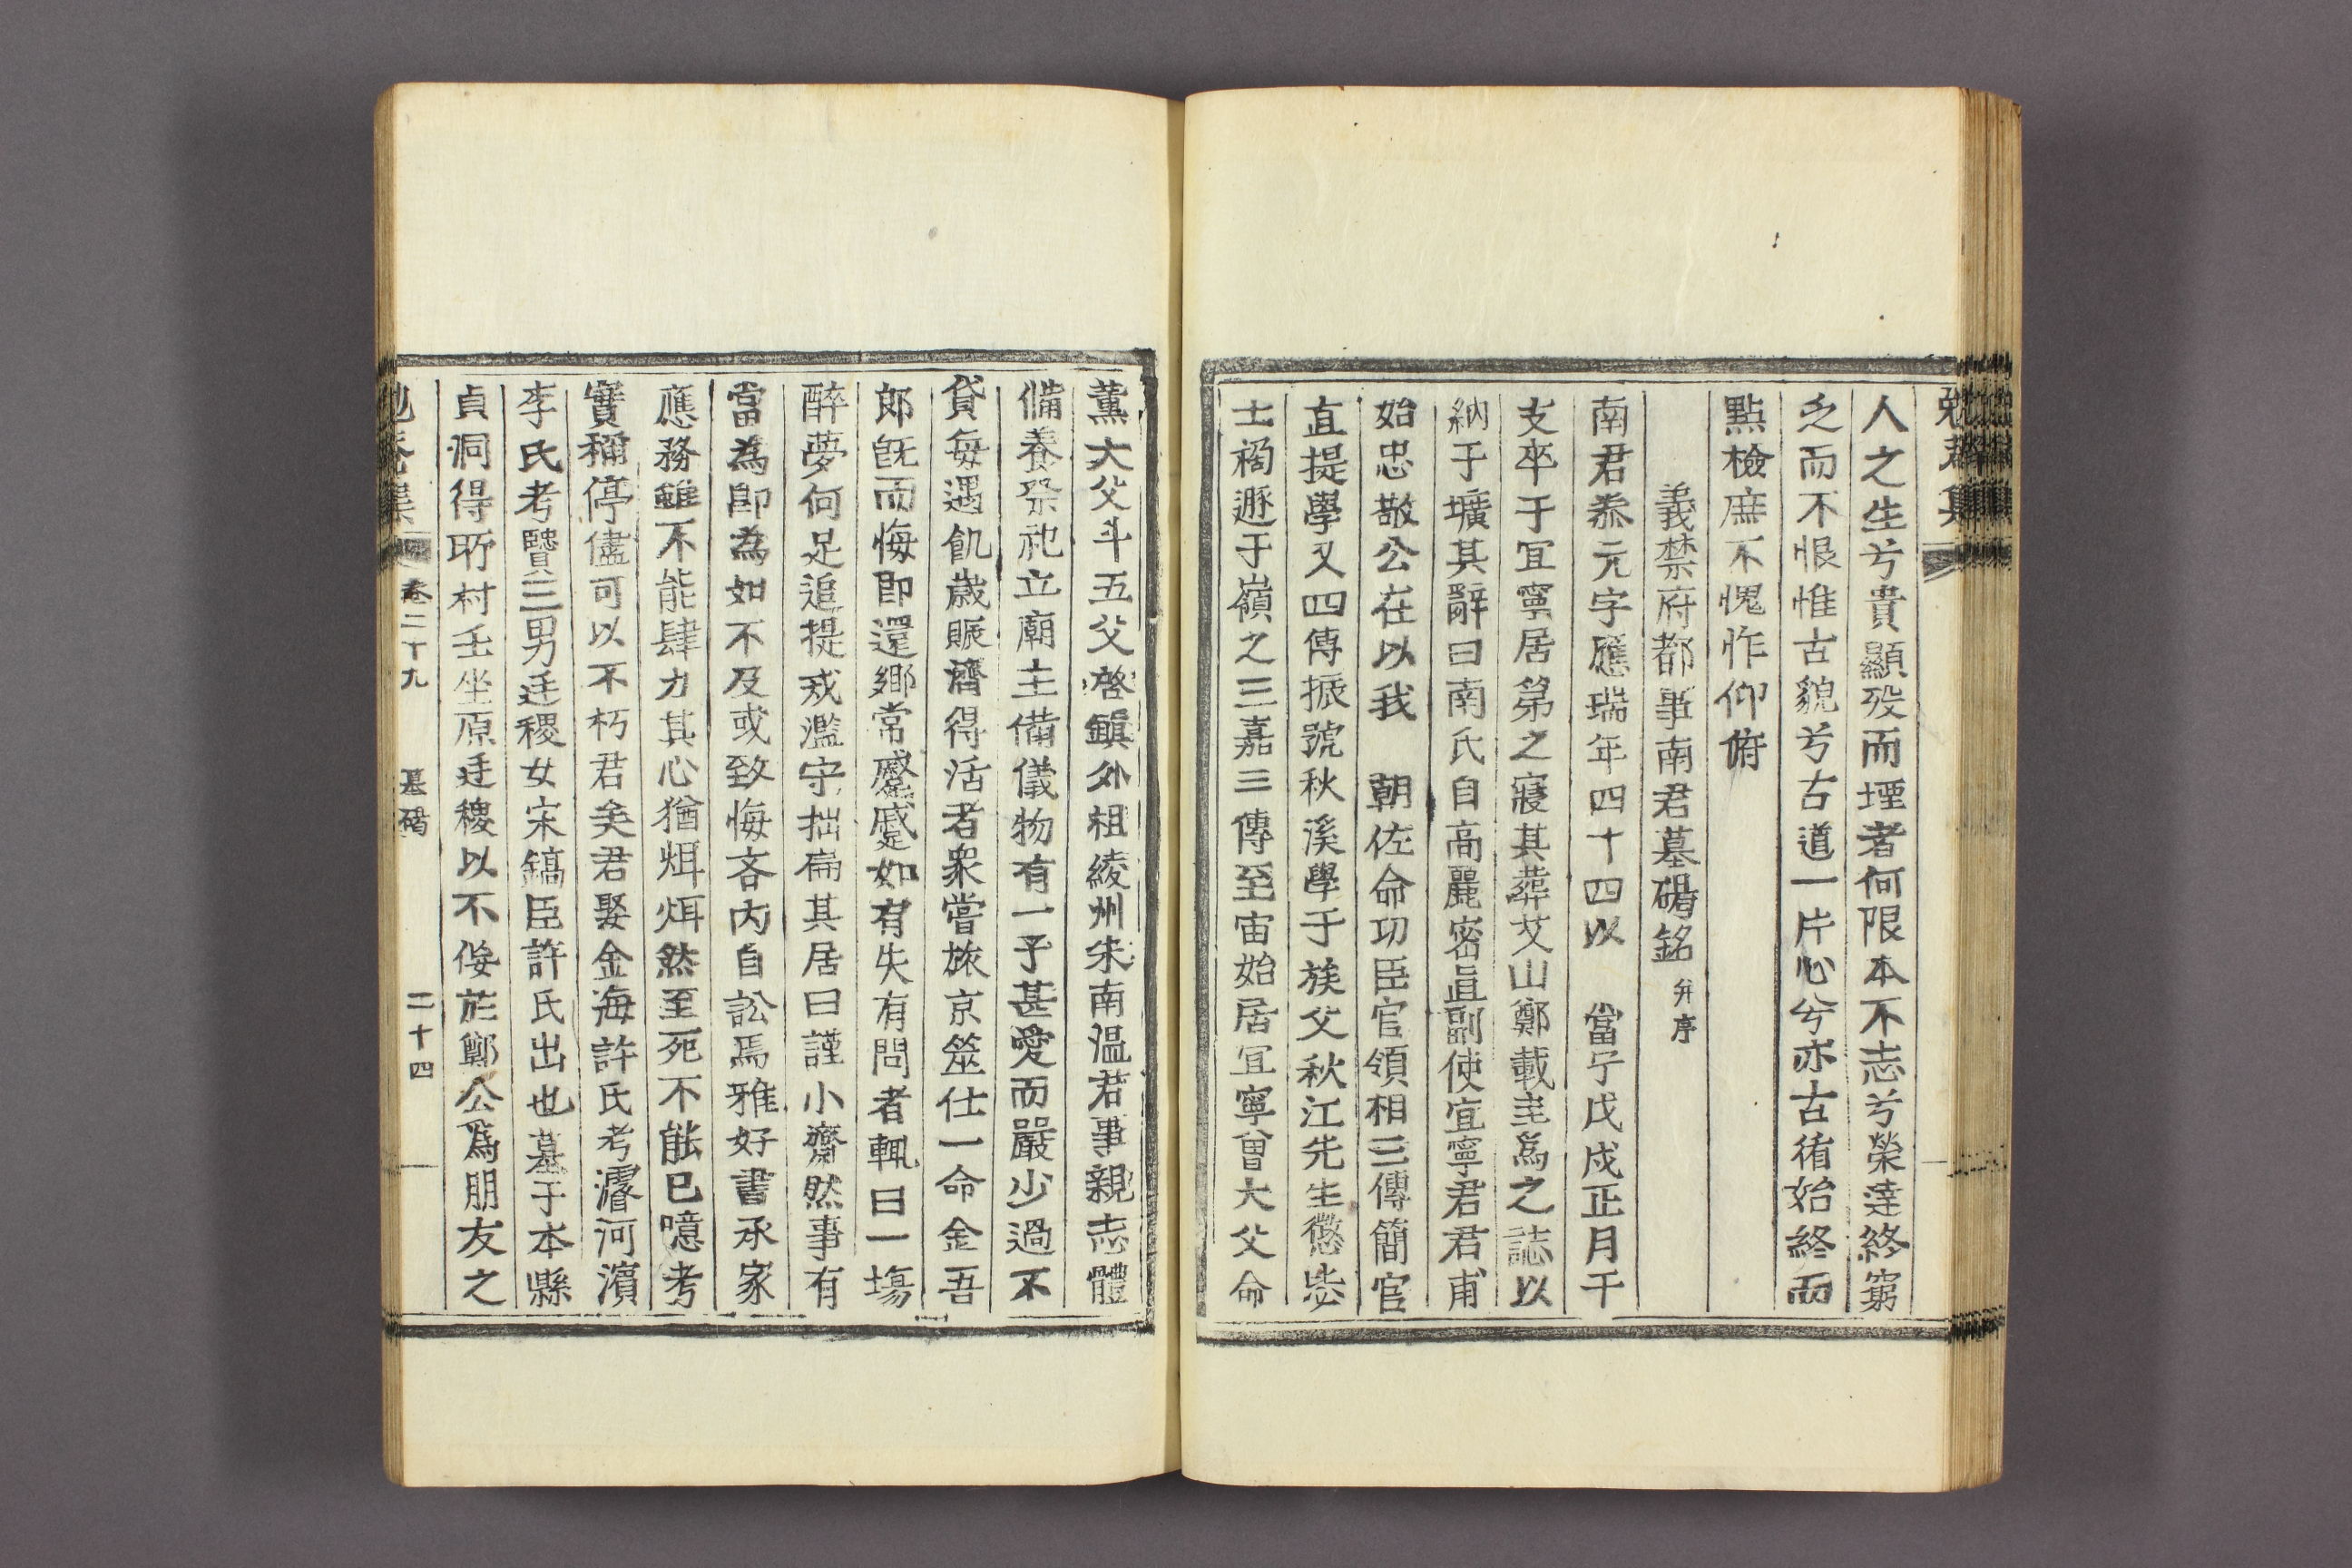 人之生兮貴顯歿而堙者何限本不志兮榮達終窮
乏而不恨惟古貌兮古道一片心兮亦古徃始終而
點檢庶不愧怍仰俯
義禁府都事南君墓碣銘 并序
南君泰元字應瑞年四十四以 當宁戊戌正月干
支卒于宜寧居第之寢其葬艾山鄭載圭爲之誌以
納于壙其辭曰南氏自高麗密直副使宜寧君君甫
始忠敬公在以我 朝佐命功臣官領相三傳簡官
直提學又四傳振號秋溪學于族父秋江先生懲毖
士禍遯于嶺之三嘉三傳至宙始居宜寧曾大父命
薰大父斗五父啓鎭外祖綾州朱南温君事親志體
備養祭祀立廟主備儀物有一子甚愛而嚴少過不
貸每遇飢歲賑濟得活者衆嘗旅京筮仕一命金吾
郎旣而悔即還鄕常蹙蹙如有失有問者輒曰一塲
醉夢何足追提戒濫守拙扁其居曰謹小齋然事有
當為卽為如不及或致悔吝内自訟焉雅好書承家
應務雖不能肆力其心猶烱烱然至死不能已噫考
實稱停儘可以不朽君矣君娶金海許氏考濬河濱
李氏考贒三男廷稷女宋鎬臣許氏出也墓于本縣
貞洞得所村壬坐原廷稷以不佞於鄭公爲朋友之
卷二十九 墓碣 二十四